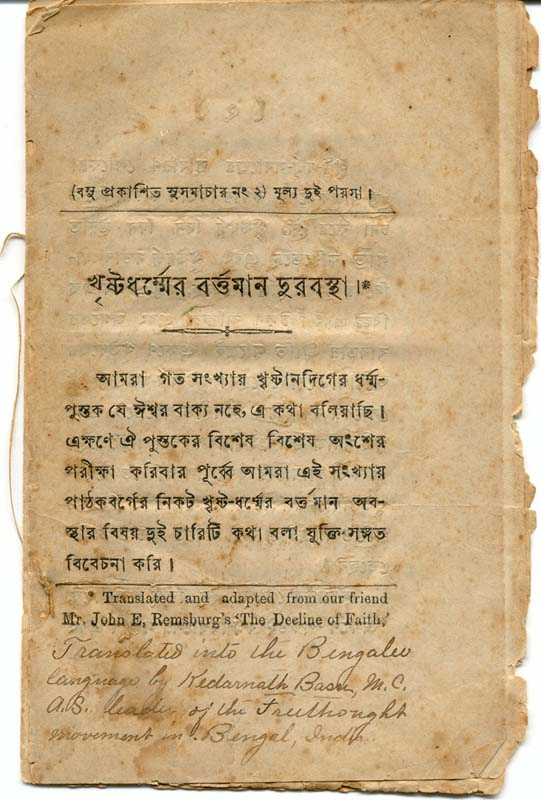 (বসু প্রকাশিত সুসমাচার নং ২) মূল্য দুই পয়সা।
খৃষ্টধর্ম্মের বর্ত্তমান দুরবস্থা।*
আমরা গত সংখ্যায় খৃষ্টানদিগের ধর্ম্ম-
পুস্তক যে ঈশ্বর বাক্য নহে, এ কথা বলিয়াছি।
এক্ষণে ঐ পুস্তকের বিশেষ বিশেষ অংশের
পরীক্ষা করিবার পূর্ব্বে আমরা এই সংখ্যায়
পাঠকবর্গের নিকট খৃষ্ট-ধর্ম্মের বর্ত্তমান অব-
স্থার বিষয় দুই চারিটি কথা বলা যুক্তি-সঙ্গত
বিবেচনা করি।
* Translated and adapted from our friend
Mr. John E, Remsburg's 'The Decline of Faith,'
Translated into the Bengalee
language by Kedarnath Basu, M.C.
A.S. leader of the Freethought
movement in Bengal, India.